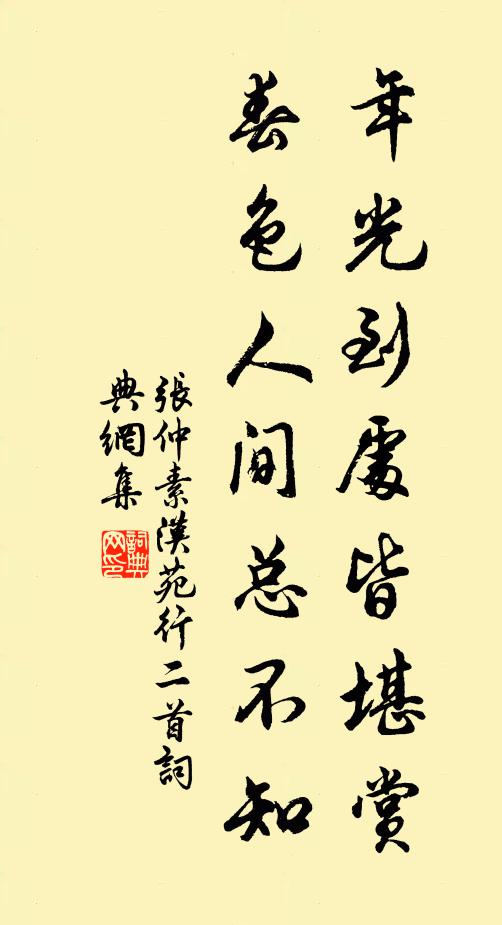 年光到處皆堪賞
春色人间总不知
張仲素漢苑行二首詞
典網集
詞典网印